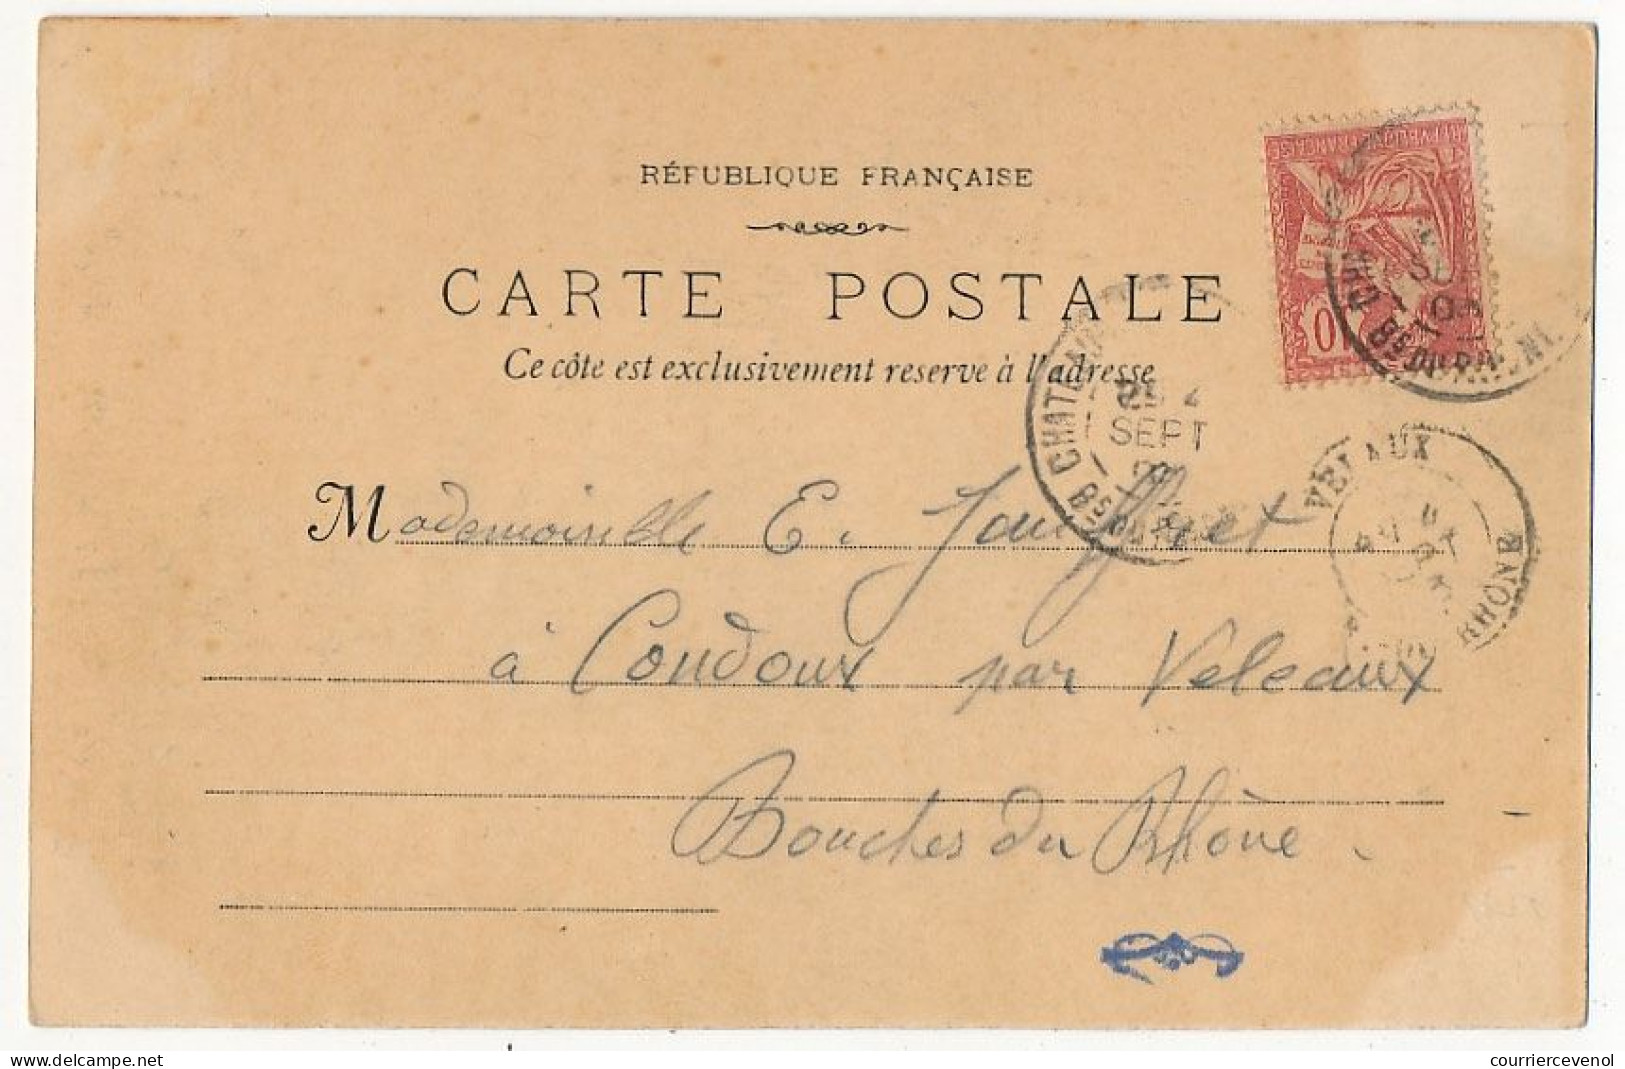 RÉPUBLIQUE FRANÇAISE
CARTE POSTALE
Ce côte est exclusivement reserve à l'adresse
REPUBLIQUE FRANÇAISE
10
CHATEAU
SEPT
BS DU RHONE
VELAUX
RHONE
Mademoiselle E. Jauffret
à Coudoux par Veleaux
Bouches du Rhône.
courriercevenol